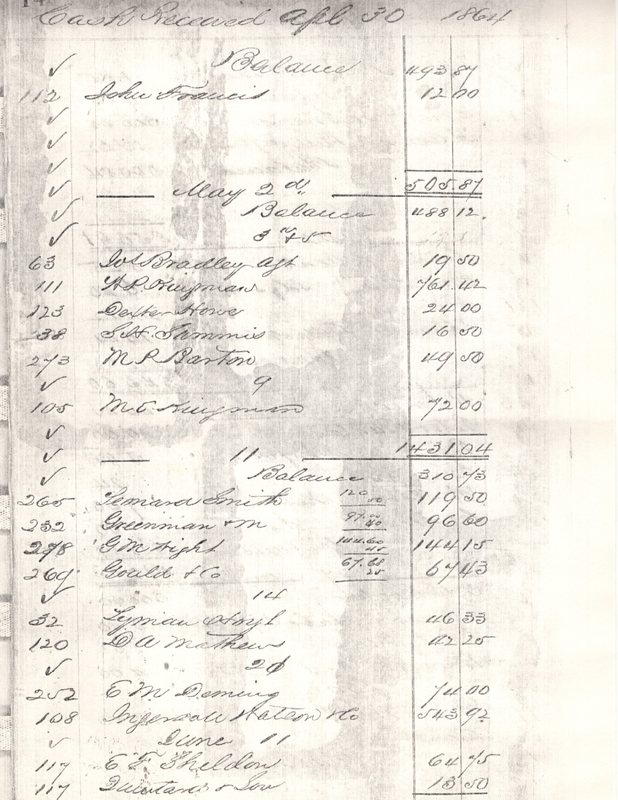 Cash Received Apl 30 1864
✓ Balance 493 87
112 John Francis 12 00
✓
✓
✓
✓ May 2d 505.87
✓ Balance 488 12.
✓ 3 & 5
63 Bradley Agt 19 50
111 H.P. Kingman 761.42
123 Dexter Howe 24 00
38 S.H. Sammis 16 50
273 M P Barton 49 50
✓ 9
105 M C Kingman 72 00
✓
✓ 11 1431.04
✓ Balance 310 73
265 Leonard Smith 120 50 119 50
232 Greenman & M 97.00 40 96 60
278 G M Hight 144.60 45 144 15
269 Gould & Co 67.68 25 67 43
✓ 14
32 Lyman Hoyt 46 33
120 D A Mathews 42 25
✓ 20
252 E M Deming 74 00
108 Ingersoll Watson & Co 543 92
✓ June 11
117 E F Sheldon 64 75
117 & Son 13 50